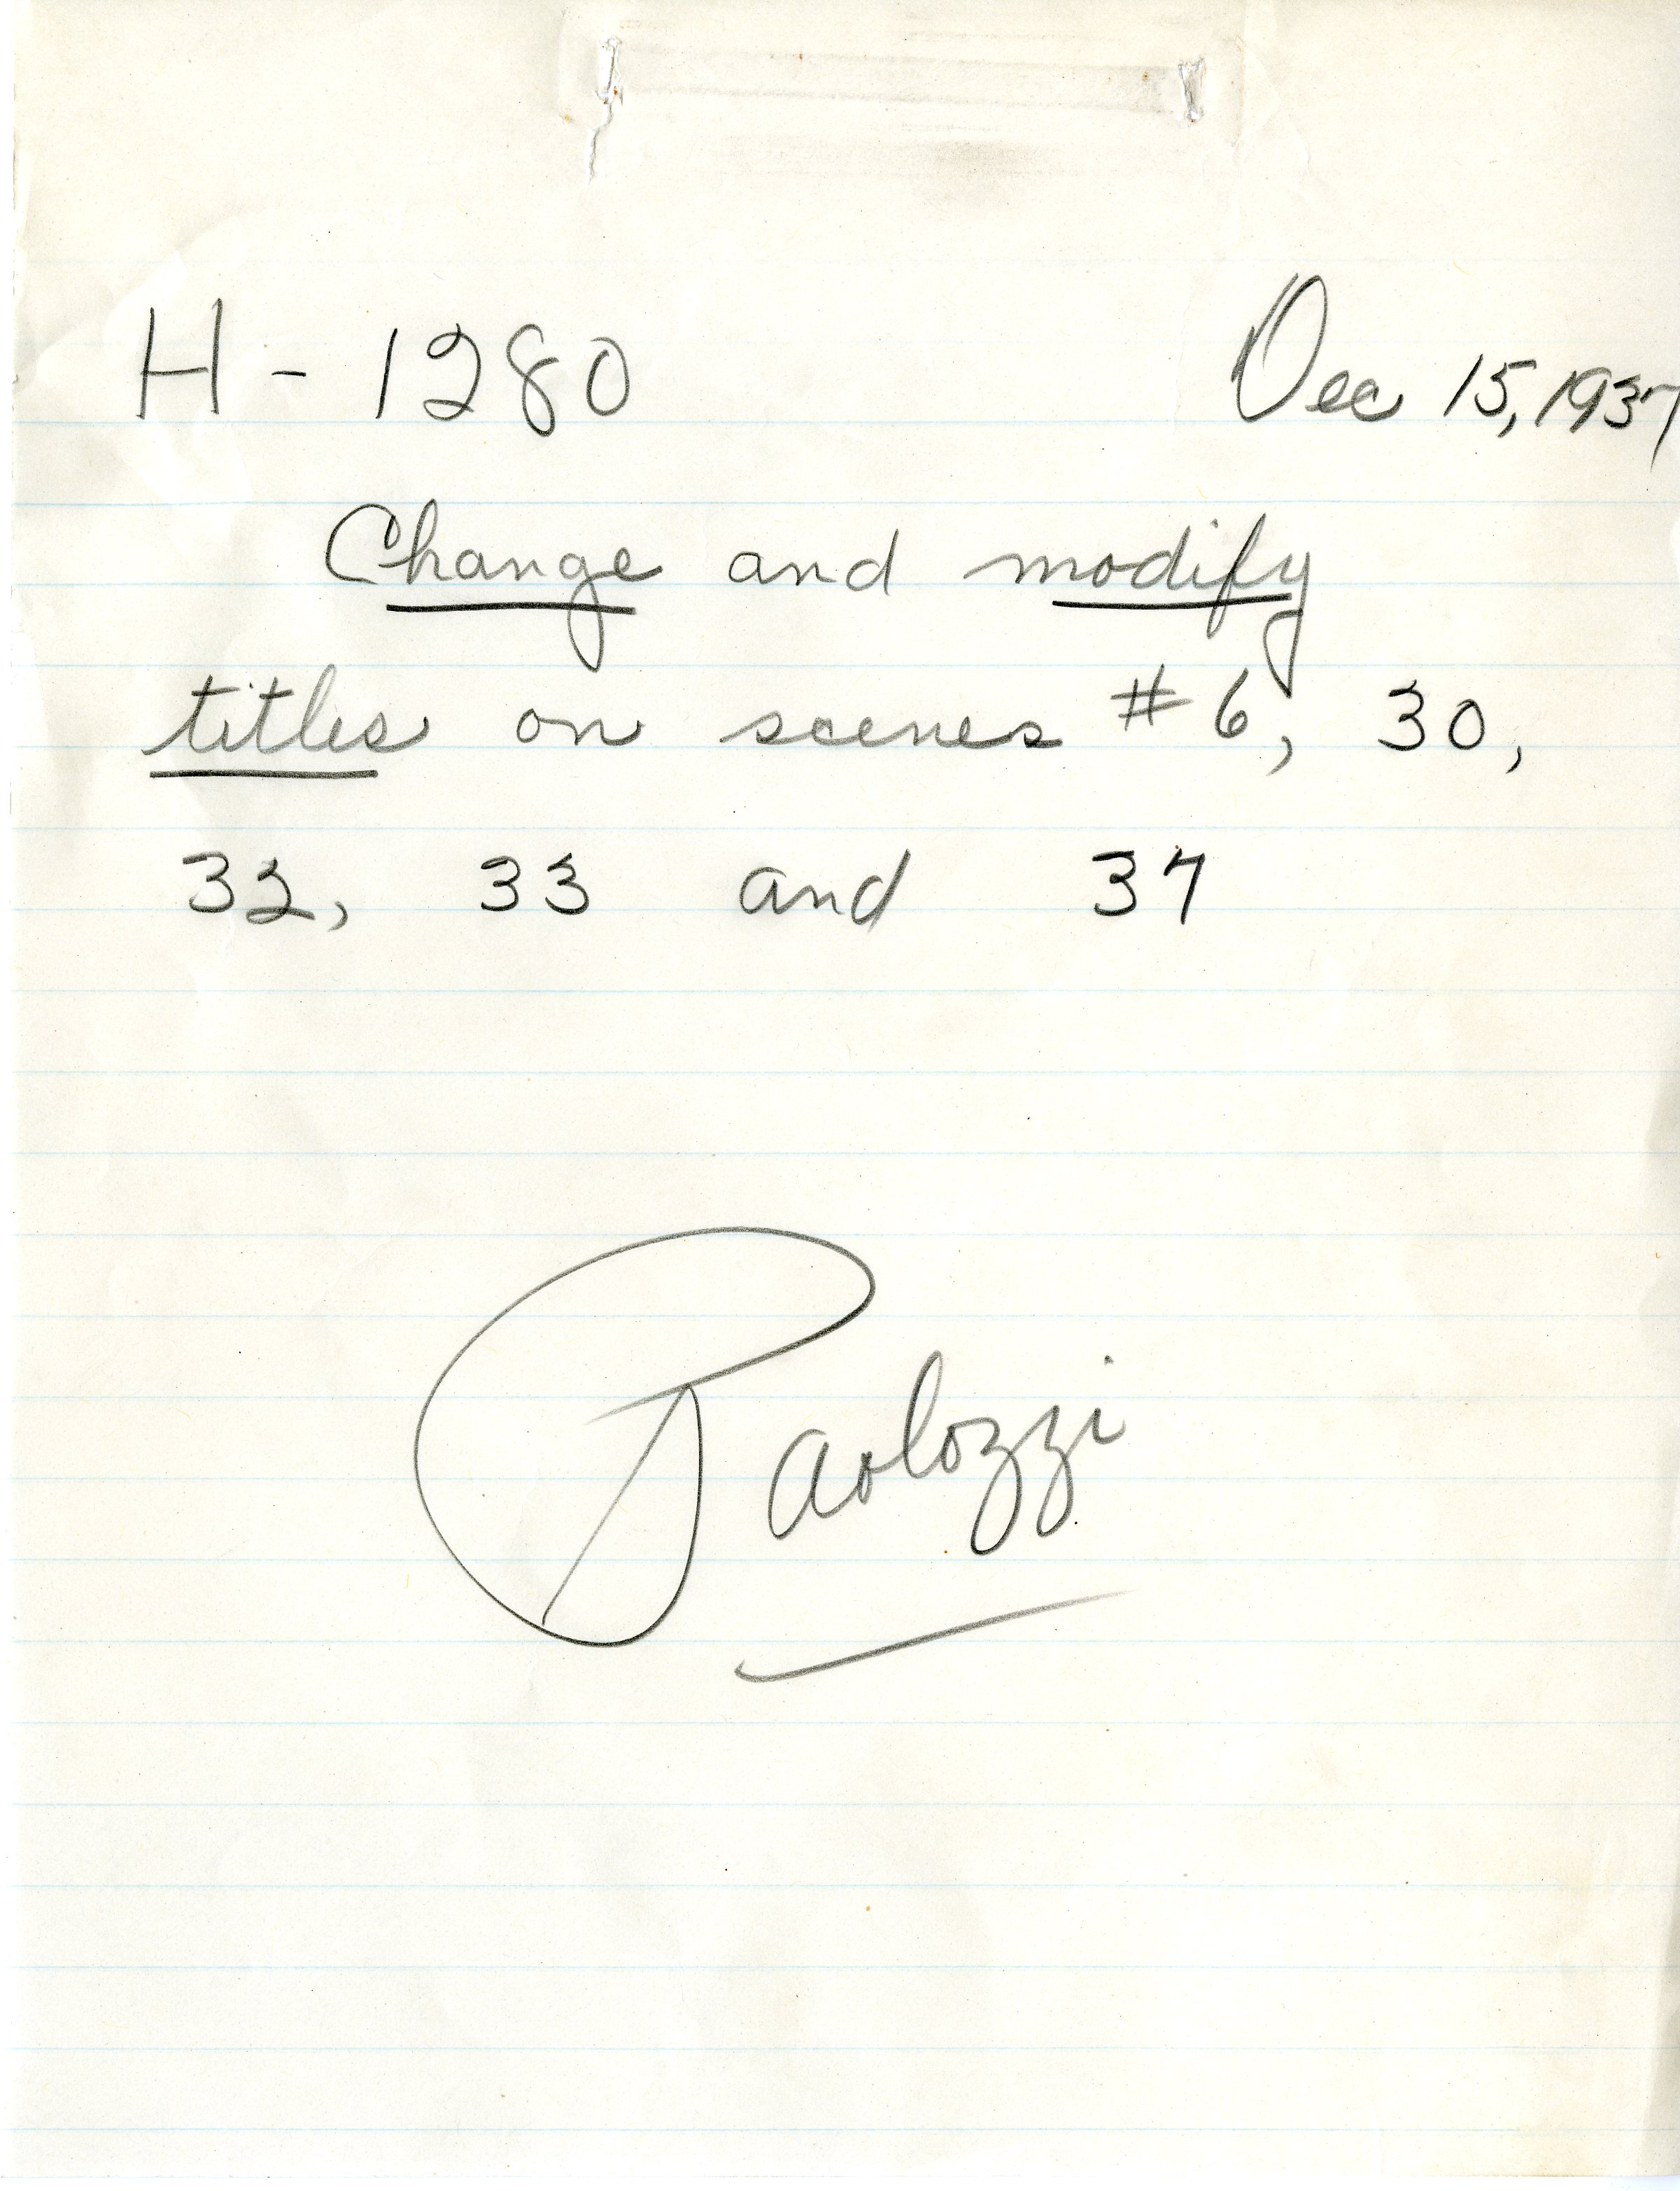 H - 1280 Dec 15, 1937
Change and modify
titles on scenes # 6, 30,
32, 33 and 37
Paolozzi